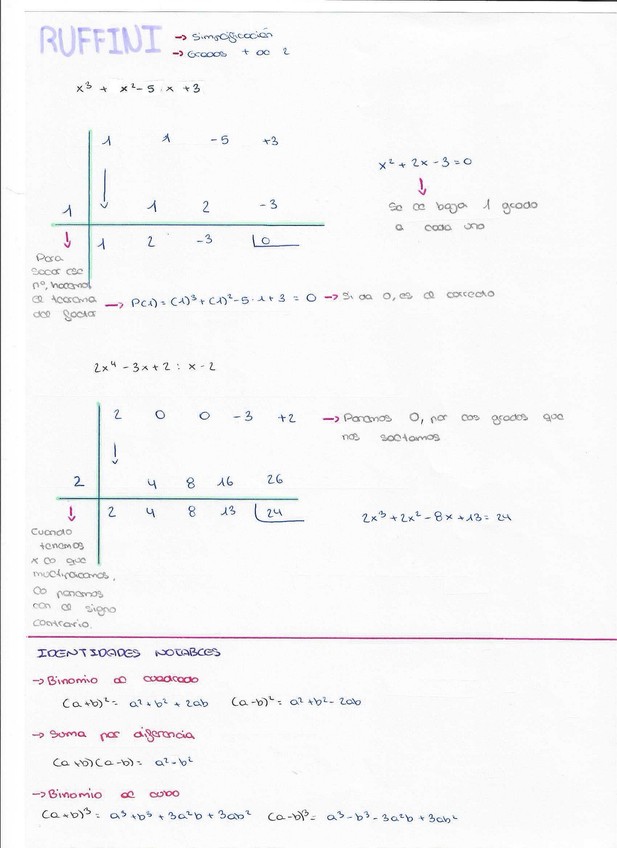 RUFFINI → Simplificación
→ Grados + de 2
x³ + x² - 5 · x + 3
1 1 -5 +3
1 1 2 -3
1 2 -3 0
x² + 2x - 3 = 0
Se le baja 1 grado
a cada uno
Para
sacar ese
nº, hacemos
el teorema
del factor
→ P(1) = (1)³ + (1)² - 5 · 1 + 3 = 0 → Si da 0, es el correcto
2x⁴ - 3x + 2 : x - 2
2 0 0 -3 +2 → Ponemos 0, por los grados que
nos saltamos
2 4 8 16 26
2 4 8 13 24
2x³ + 2x² - 8x + 13 = 24
Cuando
tenemos
x lo que
multiplicamos,
lo ponemos
con el signo
contrario.
IDENTIDADES NOTABLES
→ Binomio al cuadrado
(a+b)² = a² + b² + 2ab (a-b)² = a² + b² - 2ab
→ Suma por diferencia
(a+b)(a-b) = a² - b²
→ Binomio al cubo
(a+b)³ = a³ + b³ + 3a²b + 3ab² (a-b)³ = a³ - b³ - 3a²b + 3ab²